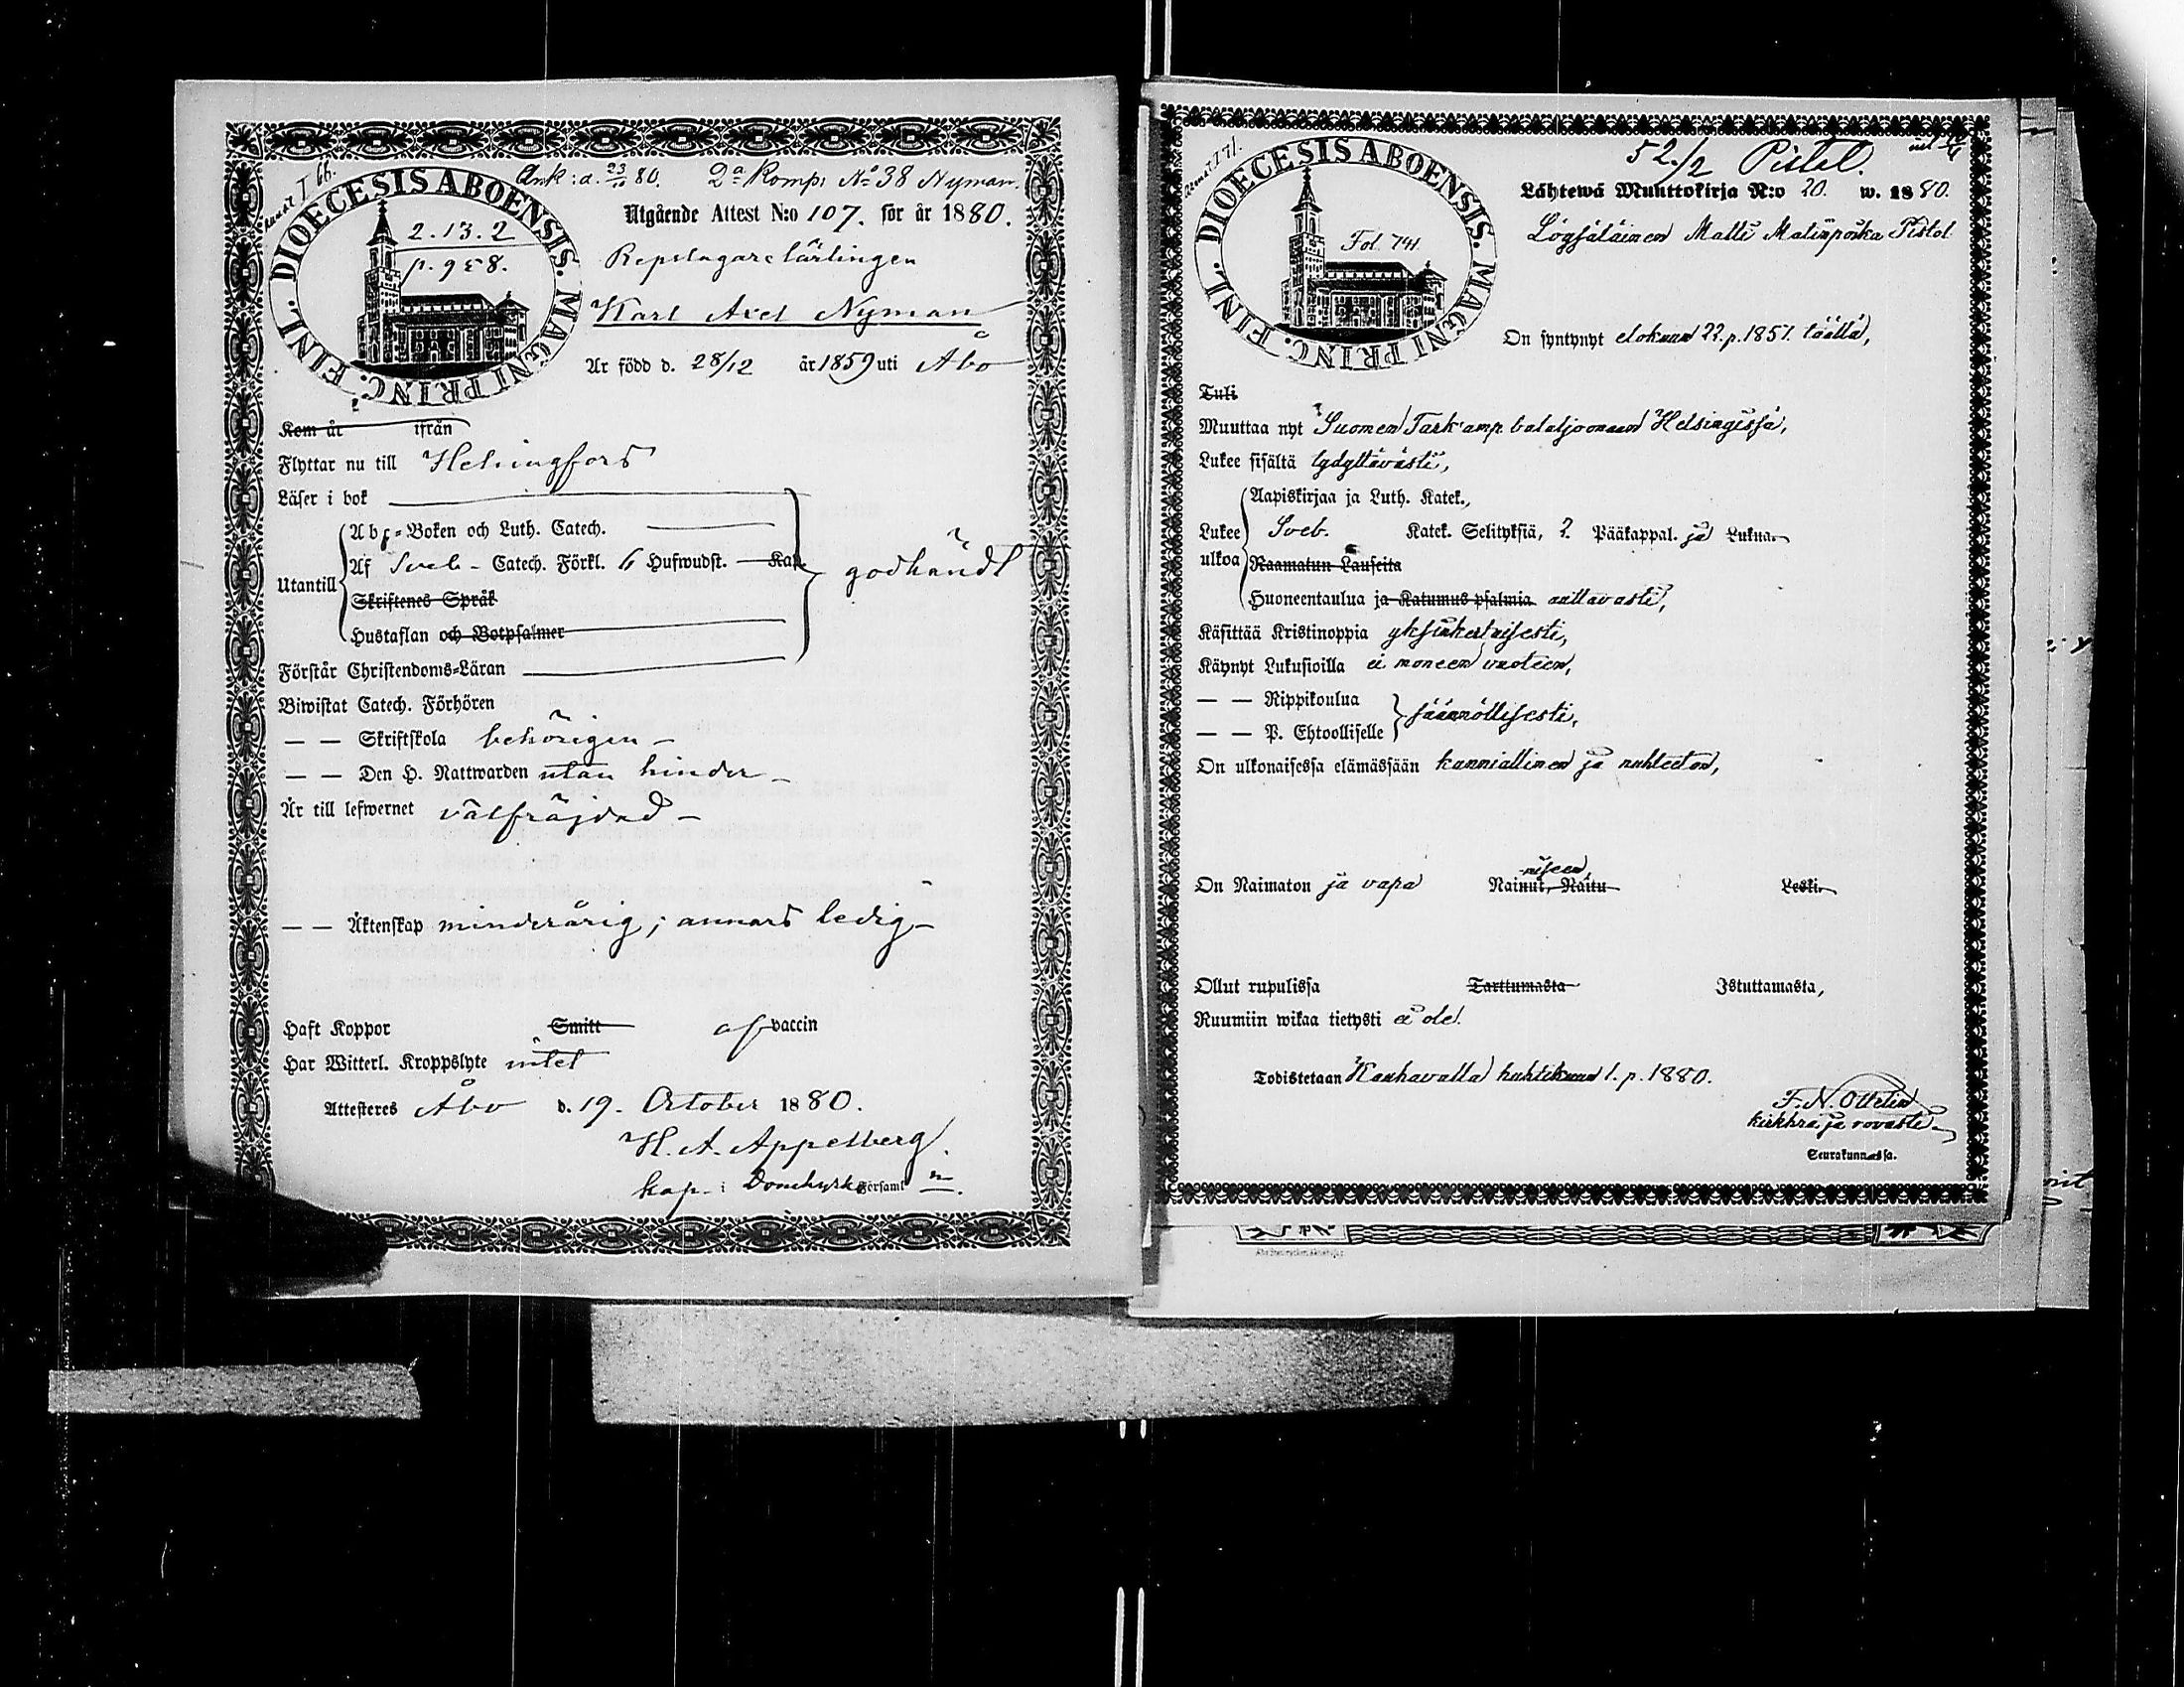 Ank: d. 23/10 80. 2a Komp: No 38 Nyman.
DIOECESIS ABOENSIS. MAGNI PRINC. FINL.
2.13.2
p. 958.
Utgående Attest N:o 107. för år 1880.
Repslagarelärlingen
Karl Axel Nyman
Är född d. 28/12 år 1859 uti Åbo
Kom år ifrån
Flyttar nu till Helsingfors
Läser i bok
Utantill
Abc-Boken och Luth. Catech.
Af Sveb - Catech. Förkl. 6 Hufwudst. Kap.
Skriftenes Språk
Hustaflan och Botpsalmer
godkändt
Förstår Christendoms-Läran
Biwistat Catech. Förhören
— — Skriftskola behörigen -
— — Den H. Nattwarden utan hinder -
Är till lefwernet välfräjdad -
— — Äktenskap minderårig; annars ledig -
Haft Koppor Smitt af vaccin
Har Witterl. Kroppslyte intet
Attesteres Åbo d. 19. October 1880.
H. A. Appelberg.
kap. i Domkyrkoförsaml
52./2 Pistol.
DIOECESIS ABOENSIS. MAGNI PRINC. FINL.
Fol. 741.
Lähtewä Muuttokirja N:o 20. w. 1880.
Matti Matinpoika Pistol
On syntynyt elokuun 22. p. 1857. täällä,
Tuli
Muuttaa nyt Suomen Tark'amp. bataljoonaan Helsingissä,
Lukee sisältä tydyttävästi,
Lukee ulkoa
Aapiskirjaa ja Luth. Katek.,
Sveb. Katek. Selityksiä, 2. Pääkappal. ja Lukua.
Raamatun Lauseita
Huoneentaulua ja Katumus psalmia auttavasti,
Käsittää Kristinoppia yksinkertaisesti,
Käynyt Lukusioilla ei moneen vuoteen,
— — Rippikoulua
— — P. Ehtoollisella
säännöllisesti,
On ulkonaisessa elämässään kunniallinen ja nuhteeton,
On Naimaton ja vapa Nainut, Naitu Leski.
naiseen,
Ollut rupulissa Tarttumasta Istuttamasta,
Ruumiin wikaa tietysti ei ole.
Todistetaan Kauhavalla huhtikuun 1. p. 1880.
F. N. Ottelin
kirkhra ja rovasti
Seurakunnassa.